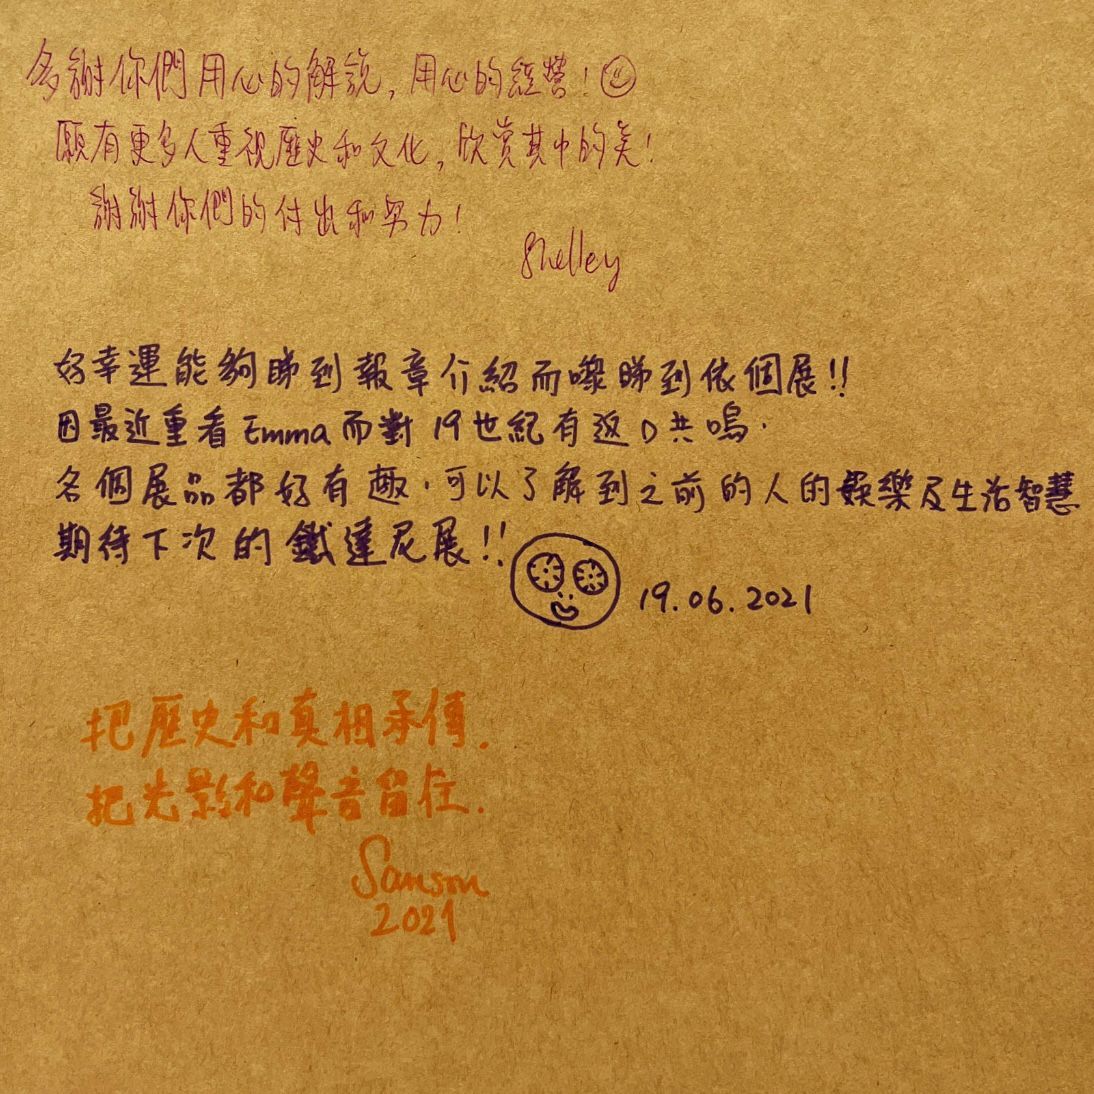 多謝你們用心的解說，用心的經營！
願有更多人重視歷史和文化，欣賞其中的美！
謝謝你們的付出和努力！
Shelley
好幸運能夠睇到報章介紹而嚟睇到依個展！！
因最近重看Emma而對19世紀有返D共鳴．
各個展品都好有趣．可以了解到之前的人的娛樂及生活智慧
期待下次的鐵達尼展！！
19.06.2021
把歷史和真相承傳．
把光影和聲音留住．
Sanson
2021